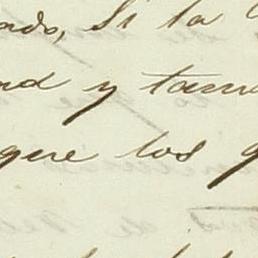 ado, Si la
nd y tam
que los q